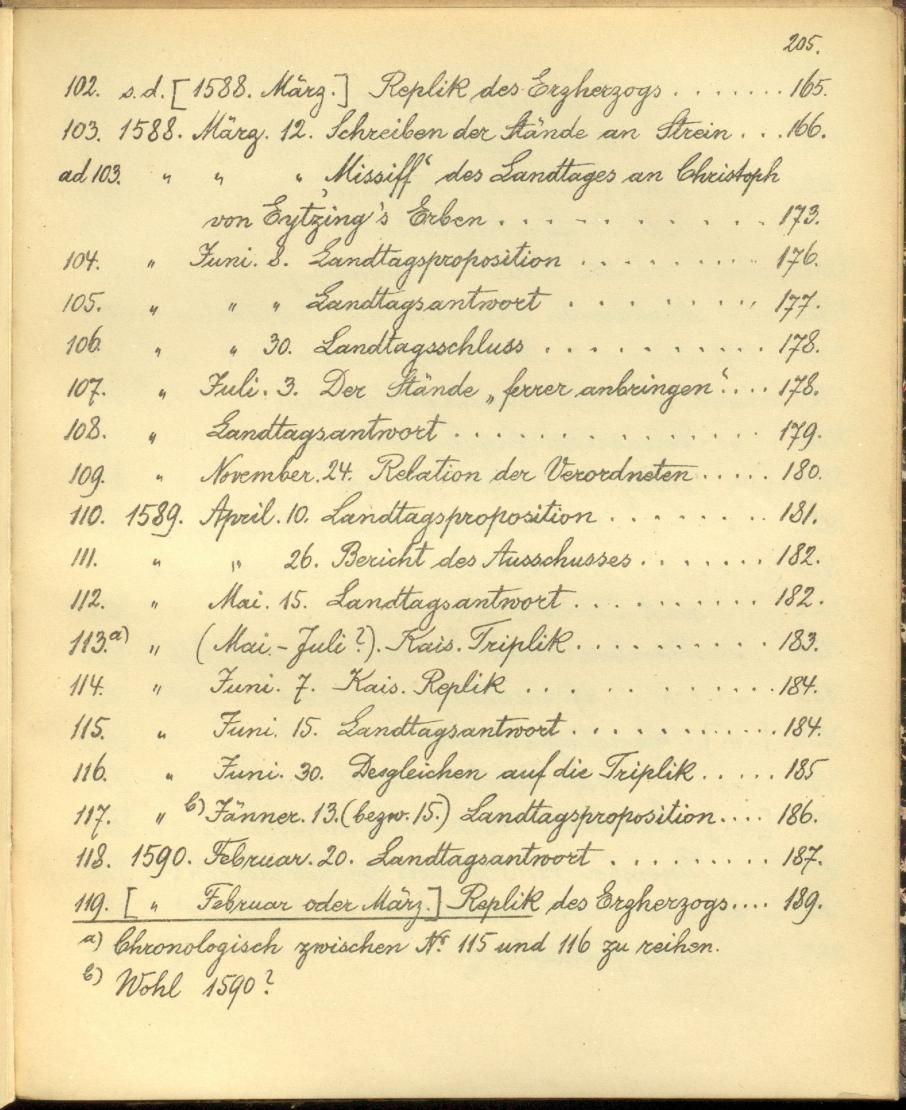 205.
102. s.d. [1588. März.] Replik des Erzherzogs . . . . . . . 165.
103. 1588. März. 12. Schreiben der Stände an Strein . . . 166.
ad 103. " " " Missiff" des Landtages an Christoph
von Eytzing's Erben . . . . . . . . . . . 173.
104. " Juni. 8. Landtagsproposition . . . . . . . . . 176.
105. " " " Landtagsantwort . . . . . . . . . . 177.
106. " " 30. Landtagsschluss . . . . . . . . . . . 178.
107. " Juli. 3. Der Stände „ferrer anbringen“. . . . 178.
108. " Landtagsantwort . . . . . . . . . . . . . . 179.
109. " November. 24. Relation der Verordneten . . . . . 180.
110. 1589. April. 10. Landtagsproposition . . . . . . . . 181.
111. " " 26. Bericht des Ausschusses . . . . . . . 182.
112. " Mai. 15. Landtagsantwort . . . . . . . . . . 182.
113.a) " (Mai - Juli?). Kais. Triplik . . . . . . . . . . 183.
114. " Juni. 7. Kais. Replik . . . . . . . . . . . 184.
115. " Juni. 15. Landtagsantwort . . . . . . . . . . 184.
116. " Juni. 30. Desgleichen auf die Triplik . . . . . 185
117. " b) Jänner. 13. (bezw. 15.) Landtagsproposition . . . . 186.
118. 1590. Februar. 20. Landtagsantwort . . . . . . . . . 187.
119. [ " Februar oder März.] Replik des Erzherzogs . . . . 189.
a) Chronologisch zwischen No. 115 und 116 zu reihen.
b) Wohl 1590?